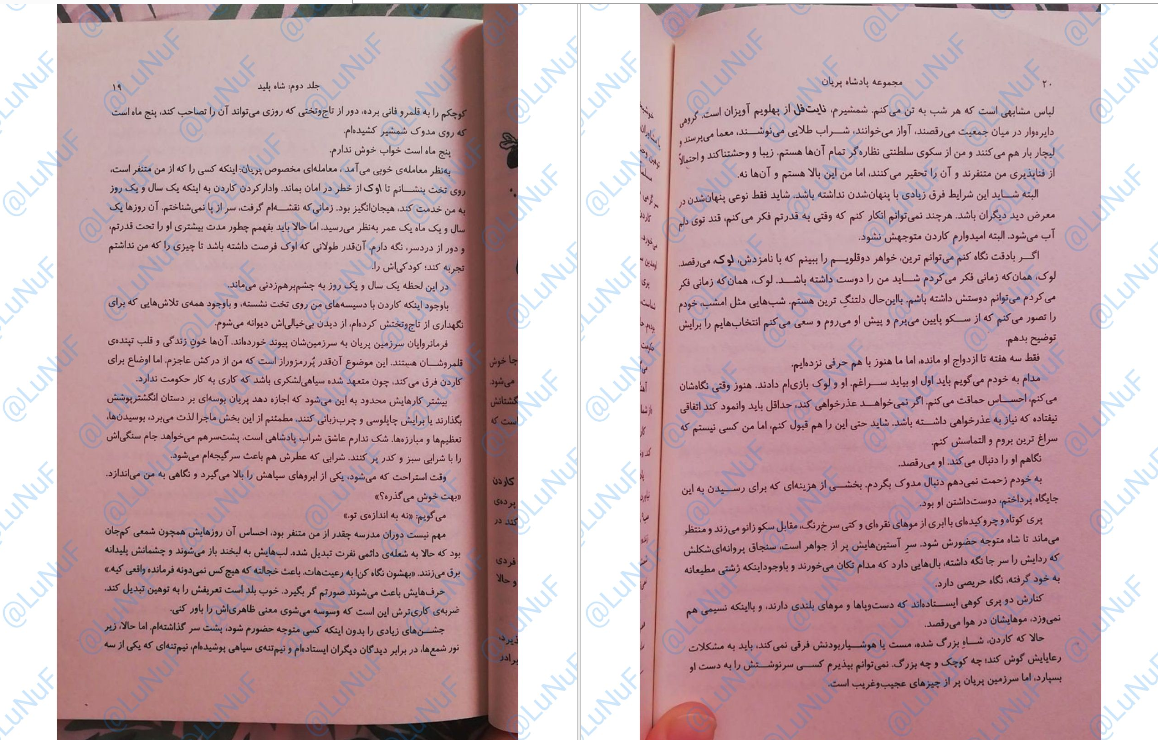 جلد دوم: شاه پلید ۱۹
کوچکم را به قلمرو فانی برده، دور از تاج‌وتختی که روزی می‌تواند آن را تصاحب کند، پنج ماه است
که روی مدوک شمشیر کشیده‌ام.
پنج ماه است خواب خوش ندارم.
به‌نظر معامله‌ی خوبی می‌آمد، معامله‌ای مخصوص پریان: اینکه کسی را که از من متنفر است،
روی تخت بنشانم تا اوک از خطر در امان بماند. وادارکردن کاردن به اینکه یک سال و یک روز
به من خدمت کند، هیجان‌انگیز بود. زمانی‌که نقشه‌ام گرفت، سر از پا نمی‌شناختم. آن روزها یک
سال و یک ماه یک عمر به‌نظر می‌رسید. اما حالا باید بفهمم چطور مدت بیشتری او را تحت قدرتم،
و دور از دردسر، نگه دارم. آن‌قدر طولانی که اوک فرصت داشته باشد تا چیزی را که من نداشتم
تجربه کند؛ کودکی‌اش را.
در این لحظه یک سال و یک روز به چشم‌برهم‌زدنی می‌ماند.
باوجود اینکه کاردن با دسیسه‌های من روی تخت نشسته، و باوجود همه‌ی تلاش‌هایی که برای
نگهداری از تاج‌وتختش کرده‌ام، از دیدن بی‌خیالی‌اش دیوانه می‌شوم.
فرمانروایان سرزمین پریان به سرزمین‌شان پیوند خورده‌اند. آن‌ها خونِ زندگی و قلب تپنده‌ی
قلمروشان هستند. این موضوع آن‌قدر پُررمزوراز است که من از درکش عاجزم. اما اوضاع برای
کاردن فرق می‌کند، چون متعهد شده سیاهی‌لشکری باشد که کاری به کار حکومت ندارد.
بیشتر کارهایش محدود به این می‌شود که اجازه دهد پریان بوسه‌ای بر دستان انگشترپوشش
بگذارند یا برایش چاپلوسی و چرب‌زبانی کنند. مطمئنم از این بخش ماجرا لذت می‌برد، بوسیدن‌ها،
تعظیم‌ها و مبارزه‌ها. شک ندارم عاشق شراب پادشاهی است. پشت‌سرهم می‌خواهد جام سنگی‌اش
را با شرابی سبز و کدر پر کنند. شرابی که عطرش هم باعث سرگیجه‌ام می‌شود.
وقت استراحت که می‌شود، یکی از ابروهای سیاهش را بالا می‌گیرد و نگاهی به من می‌اندازد.
«بهت خوش می‌گذره؟»
می‌گویم: «نه به اندازه‌ی تو.»
مهم نیست دوران مدرسه چقدر از من متنفر بود، احساس آن روزهایش همچون شمعی کم‌جان
بود که حالا به شعله‌ی دائمی نفرت تبدیل شده. لب‌هایش به لبخند باز می‌شوند و چشمانش پلیدانه
برق می‌زنند. «بهشون نگاه کن! به رعیت‌هات. باعث خجالته که هیچ‌کس نمی‌دونه فرمانده واقعی کیه.»
حرف‌هایش باعث می‌شوند صورتم گر بگیرد. خوب بلد است تعریفش را به توهین تبدیل کند.
ضربه‌ی کاری‌ترش این است که وسوسه می‌شوی معنی ظاهری‌اش را باور کنی.
جشن‌های زیادی را بدون اینکه کسی متوجه حضورم شود، پشت سر گذاشته‌ام. اما حالا، زیر
نور شمع‌ها، در برابر دیدگان دیگران ایستاده‌ام و نیم‌تنه‌ی سیاهی پوشیده‌ام، نیم‌تنه‌ای که یکی از سه
۲۰ مجموعه پادشاه پریان
لباس مشابهی است که هر شب به تن می‌کنم. شمشیرم، نایت‌فل از پهلویم آویزان است. گروهی
دایره‌وار در میان جمعیت می‌رقصند، آواز می‌خوانند، شراب طلایی می‌نوشند، معما می‌پرسند و
لیچار بار هم می‌کنند و من از سکوی سلطنتی نظاره‌گر تمام آن‌ها هستم. زیبا و وحشتناکند و احتمالاً
از فناپذیری من متنفرند و آن را تحقیر می‌کنند، اما من این بالا هستم و آن‌ها نه.
البته شاید این شرایط فرق زیادی با پنهان‌شدن نداشته باشد. شاید فقط نوعی پنهان‌شدن در
معرض دید دیگران باشد. هرچند نمی‌توانم انکار کنم که وقتی به قدرتم فکر می‌کنم، قند توی دلم
آب می‌شود. البته امیدوارم کاردن متوجهش نشود.
اگر بادقت نگاه کنم می‌توانم ترین، خواهر دوقلویم را ببینم که با نامزدش، لوک، می‌رقصد.
لوک، همان‌که زمانی فکر می‌کردم شاید من را دوست داشته باشد. لوک، همان‌که زمانی فکر
می‌کردم می‌توانم دوستش داشته باشم. بااین‌حال دلتنگِ ترین هستم. شب‌هایی مثل امشب، خودم
را تصور می‌کنم که از سکو پایین می‌پرم و پیش او می‌روم و سعی می‌کنم انتخاب‌هایم را برایش
توضیح بدهم.
فقط سه هفته تا ازدواج او مانده، اما ما هنوز با هم حرفی نزده‌ایم.
مدام به خودم می‌گویم باید اول او بیاید سراغم. او و لوک بازی‌ام دادند. هنوز وقتی نگاه‌شان
می‌کنم، احساس حماقت می‌کنم. اگر نمی‌خواهد عذرخواهی کند، حداقل باید وانمود کند اتفاقی
نیفتاده که نیاز به عذرخواهی داشته باشد. شاید حتی این را هم قبول کنم، اما من کسی نیستم که
سراغ ترین بروم و التماسش کنم.
نگاهم او را دنبال می‌کند. او می‌رقصد.
به خودم زحمت نمی‌دهم دنبال مدوک بگردم. بخشی از هزینه‌ای که برای رسیدن به این
جایگاه پرداختم، دوست‌داشتن او بود.
پری کوتاه و چروکیده‌ای با ابری از موهای نقره‌ای و کتی سرخ‌رنگ، مقابل سکو زانو می‌زند و منتظر
می‌ماند تا شاه متوجه حضورش شود. سرِ آستین‌هایش پر از جواهر است، سنجاق پروانه‌ای‌شکلش
که ردایش را سر جا نگه داشته، بال‌هایی دارد که مدام تکان می‌خورند و باوجوداینکه ژشتی مطیعانه
به خود گرفته، نگاه حریصی دارد.
کنارش دو پری کوهی ایستاده‌اند که دست‌وپاها و موهای بلندی دارند، و بااینکه نسیمی هم
نمی‌وزد، موهایشان در هوا می‌رقصد.
حالا که کاردن، شاهِ بزرگ شده، مست یا هوشیاربودنش فرقی نمی‌کند، باید به مشکلات
رعایایش گوش کند؛ چه کوچک و چه بزرگ. نمی‌توانم بپذیرم کسی سرنوشتش را به دست او
بسپارد، اما سرزمین پریان پر از چیزهای عجیب‌وغریب است.
@LuNuF